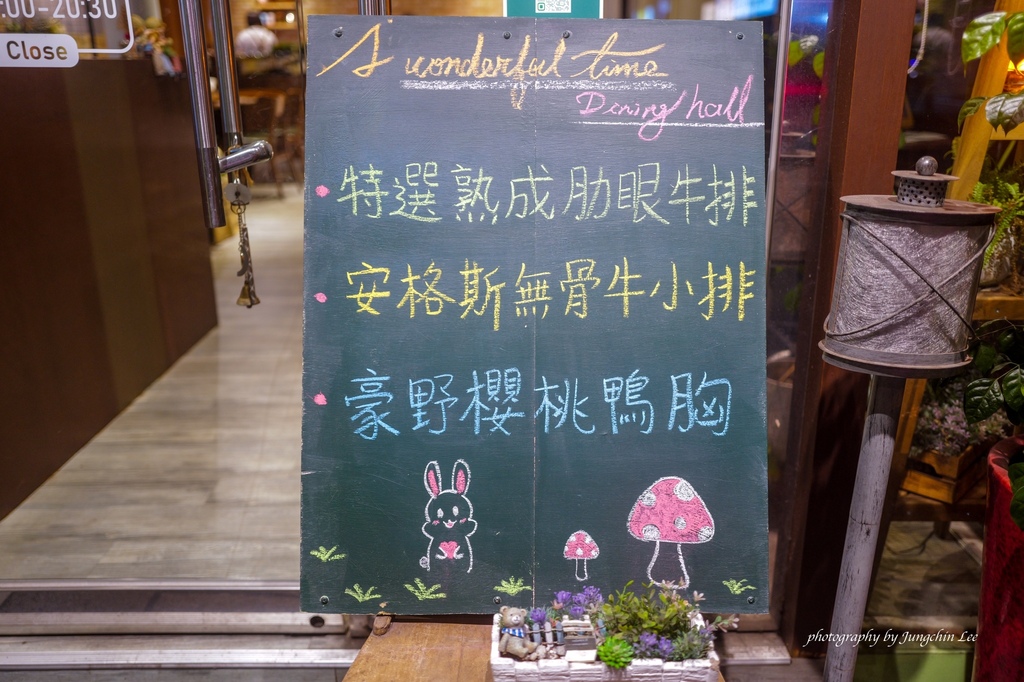 :00-20:30
Close
A wonderful time
Dining hall
特選熟成肋眼牛排
安格斯無骨牛小排
豪野櫻桃鴨胸
photography by Jungchin Lee